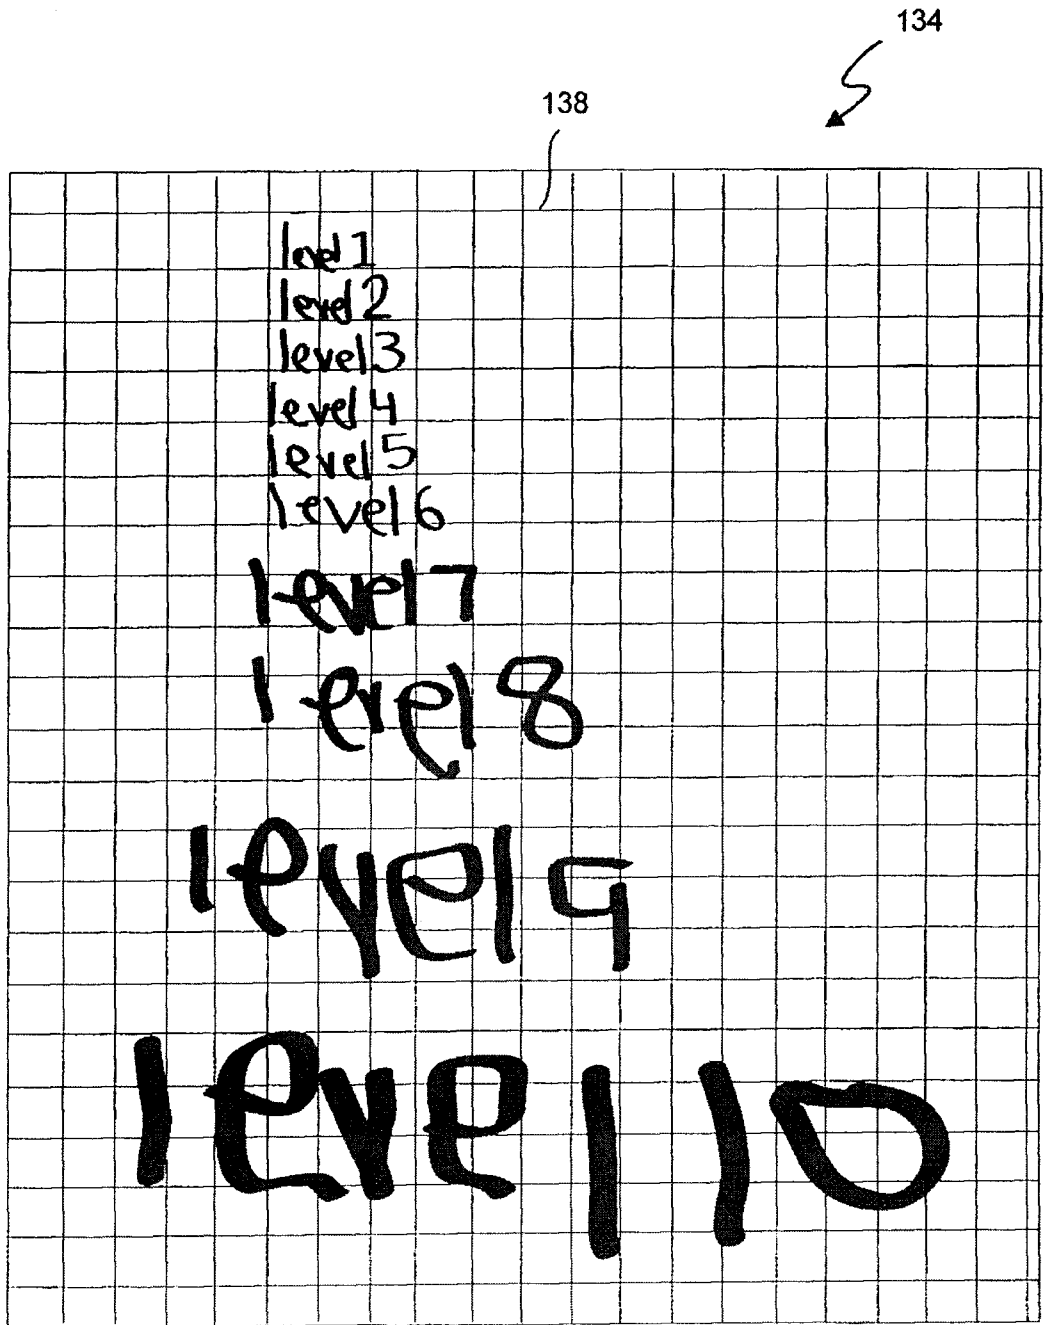 134
138
level 1
level 2
level 3
level 4
level 5
level 6
level 7
level 8
level 9
level 10